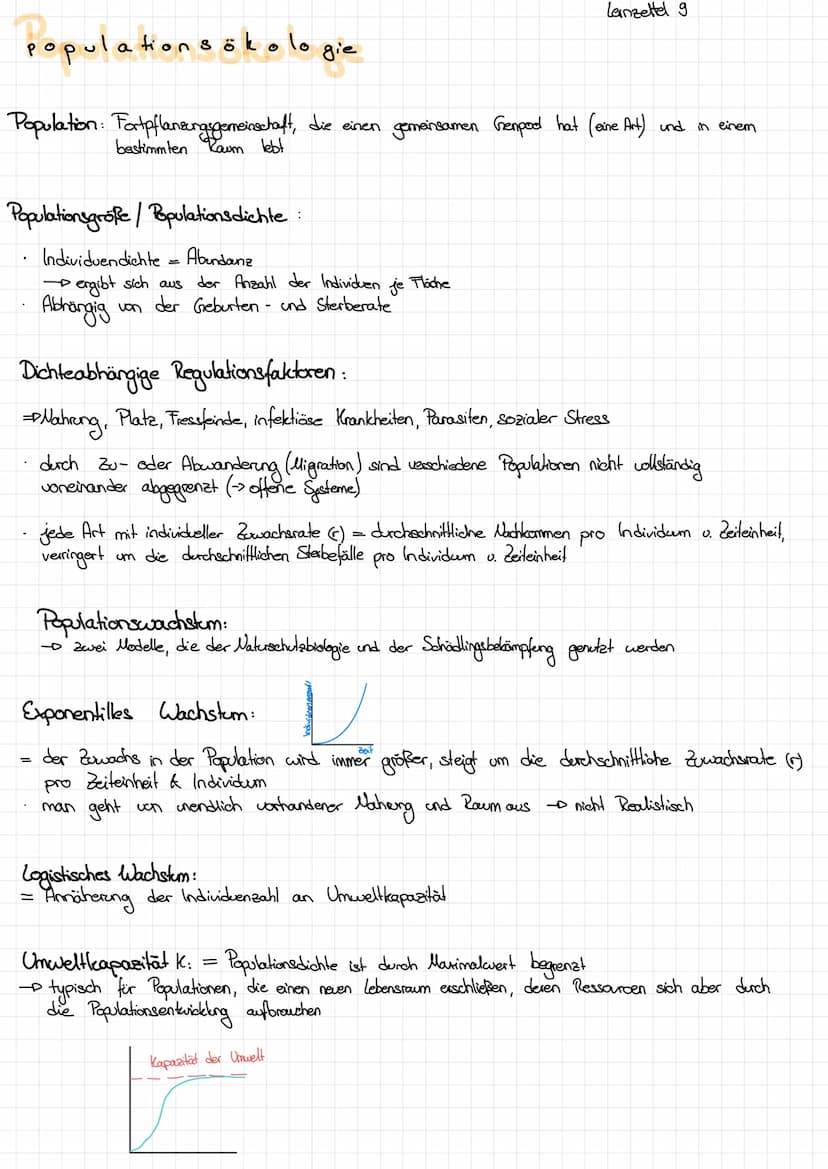 Lernzettel 9
Populationsökologie
Population: Fortpflanzungsgemeinschaft, die einen gemeinsamen Genpool hat (eine Art) und in einem
bestimmten Raum lebt
Populationsgröße / Populationsdichte :
· Individuendichte = Abundanz
→ ergibt sich aus der Anzahl der Individuen je Fläche
· Abhängig von der Geburten - und Sterberate
Dichteabhängige Regulationsfaktoren :
⇒ Nahrung, Platz, Fressfeinde, infektiöse Krankheiten, Parasiten, sozialer Stress
· durch Zu- oder Abwanderung (Migration) sind verschiedene Populationen nicht vollständig
voneinander abgegrenzt (→ offene Systeme)
· jede Art mit individueller Zuwachsrate (r) = durchschnittliche Nachkommen pro Individuum u. Zeiteinheit,
verringert um die durchschnittlichen Sterbefälle pro Individuum u. Zeiteinheit
Populationswachstum:
→ zwei Modelle, die der Naturschutzbiologie und der Schädlingsbekämpfung genutzt werden
Exponentilles Wachstum:
Individuenanzahl
Zeit
= der Zuwachs in der Population wird immer größer, steigt um die durchschnittliche Zuwachsrate (r)
pro Zeiteinheit & Individuum
· man geht von unendlich vorhandener Nahrung und Raum aus → nicht Realistisch
Logistisches Wachstum:
= Annäherung der Individuenzahl an Umweltkapazität
Umweltkapazität K: = Populationsdichte ist durch Maximalwert begrenzt
→ typisch für Populationen, die einen neuen Lebensraum erschließen, deren Ressourcen sich aber durch
die Populationsentwicklung aufbrauchen
Kapazität der Umwelt